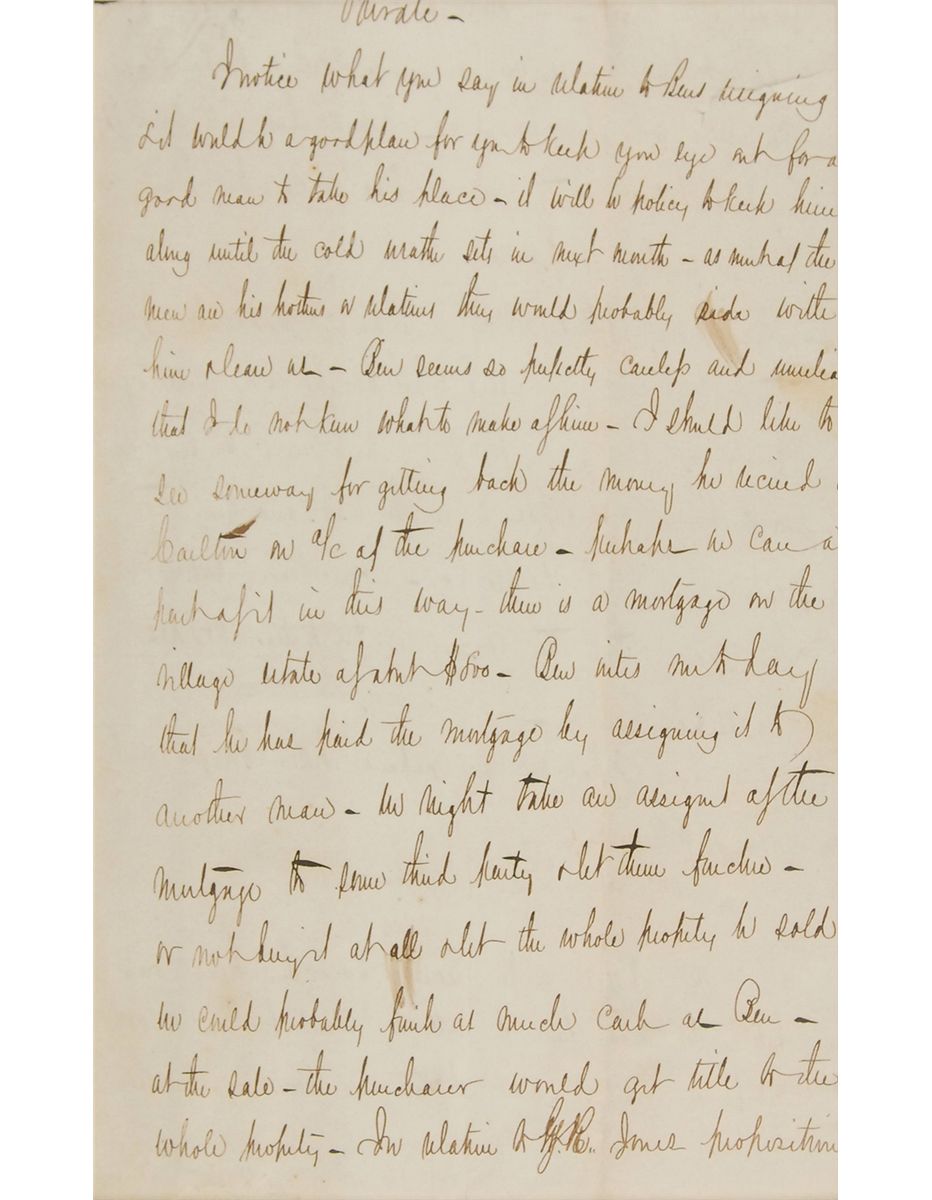 Private -
I notice what you say in relation to Bens resigning
& it would be a good plan for you to keep your eye out for a
good man to take his place - it will be policy to keep him
along until the cold weather sets in next month - as most of the
men are his brothers or relatives they would probably side with
him & leave us - Ben seems so perfectly careless and
that I do not know what to make of him - I should like to
see someway for getting back the money he received
Carlton on a/c of the purchase - perhaps we can
part of it in this way - there is a mortgage on the
village estate of about $800 - Ben writes me to day
that he has paid the mortgage by assigning it to
another man - we might take an assignt of the
mortgage to some third party & let them foreclose -
or not buy it at all & let the whole property be sold
we could probably furnish as much cash as Ben -
at the sale - the purchaser would get title to the
whole property - In relation to Jones proposition